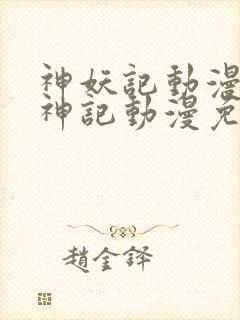 神妖記動漫
神記動漫免
趙金鐸